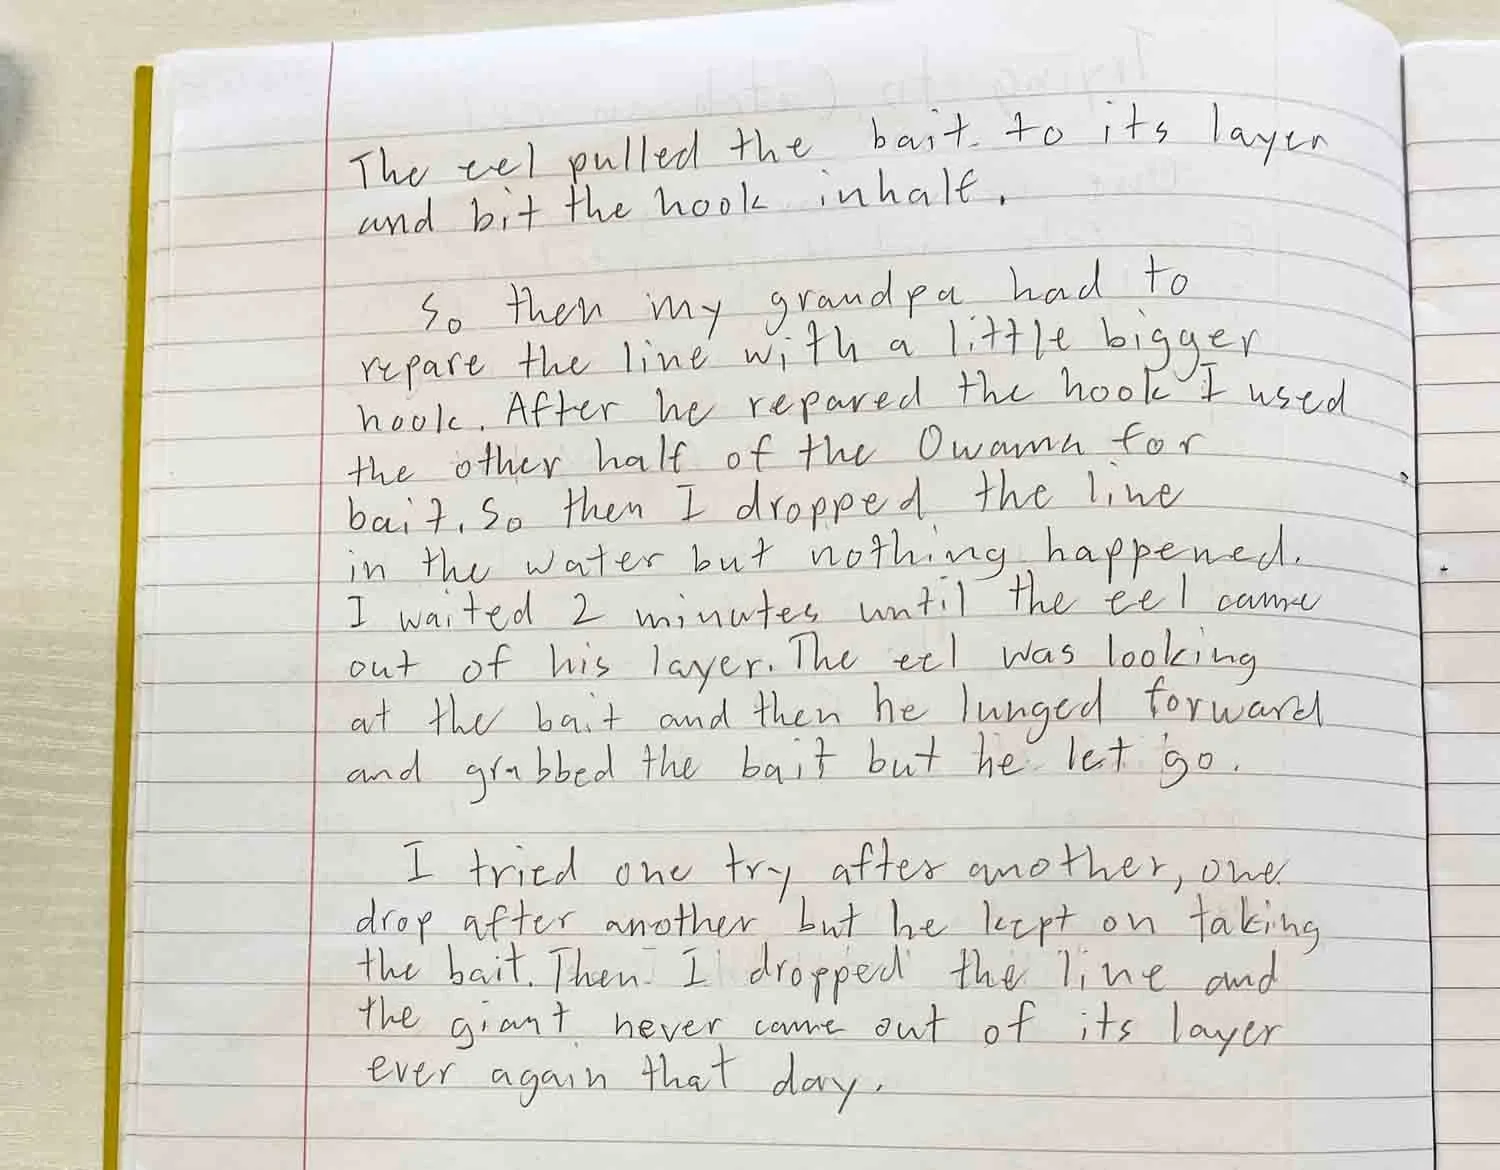 The eel pulled the bait to its layer
and bit the hook inhalf.
So then my grandpa had to
repare the line with a little bigger
hook. After he repared the hook I used
the other half of the Owama for
bait. So then I dropped the line
in the water but nothing happened.
I waited 2 minutes until the eel came
out of his layer. The eel was looking
at the bait and then he lunged forward
and grabbed the bait but he let go.
I tried one try after another, one
drop after another but he kept on taking
the bait. Then I dropped the line and
the giant never came out of its layer
ever again that day.